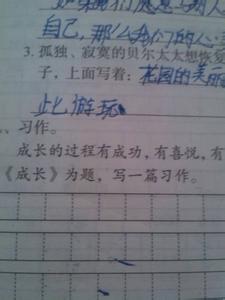 自己,那么我们的心
3.孤独、寂寞的贝尔太太想恢复
子,上面写着:花园的美丽
此游玩
、习作。
成长的过程有成功,有喜悦,有
《成长》为题,写一篇习作。